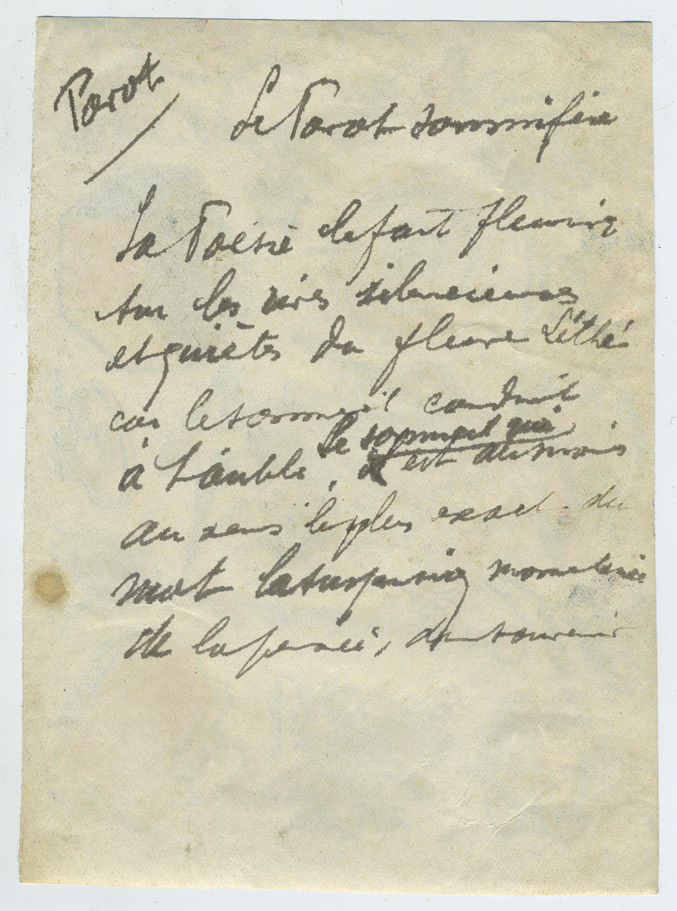 Pavot
Le Pavot somnifère
La Poésie le fait fleurir
sur les rives silencieuses
et quiètes du fleuve Léthé
car le sommeil conduit
à l'oubli, le sommeil qui
est au moins
au sens le plus exact du
mot la suspension momentanée
de la pensée, du souvenir